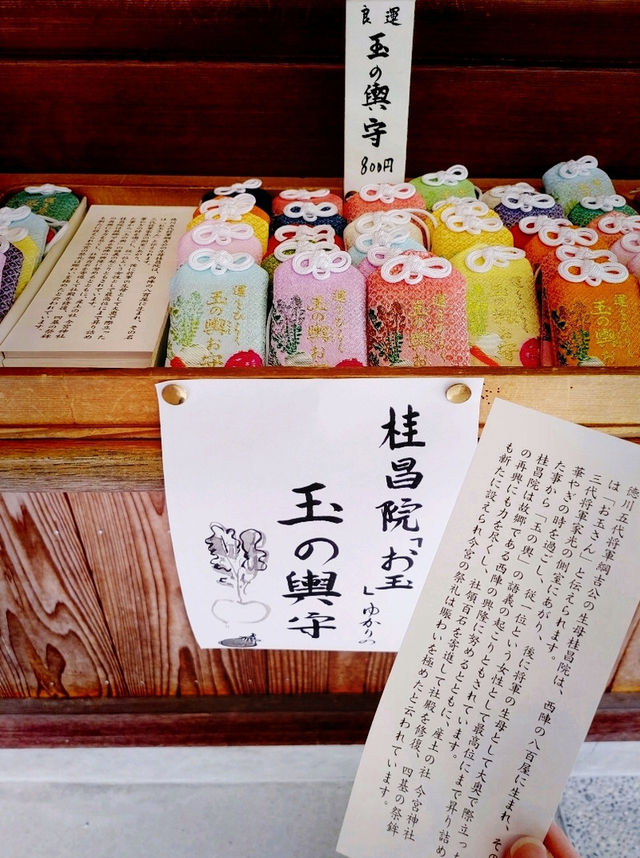 良運
玉の輿守
800円
玉の輿お守
玉の輿お
玉の輿お
桂昌院「お玉」ゆかりの
玉の輿守
徳川五代将軍綱吉公の生母桂昌院は、西陣の八百屋に生まれ、その
は「お玉さん」と伝えられます。
三代将軍家光の側室にあがり、後に将軍の生母として大奥で際立った
華やぎの時を過ごし、従一位という女性として最高位にまで昇り詰め
た事から「玉の輿」の語義の起こりともされています。
桂昌院は故郷である西陣の興隆に努めるとともに、産土の社 今宮神社
の再興にも力を尽くし、社領百石を寄進して社殿を修復、四基の祭鉾
も新たに設えられ今宮の祭礼は賑わいを極めたと云われています。